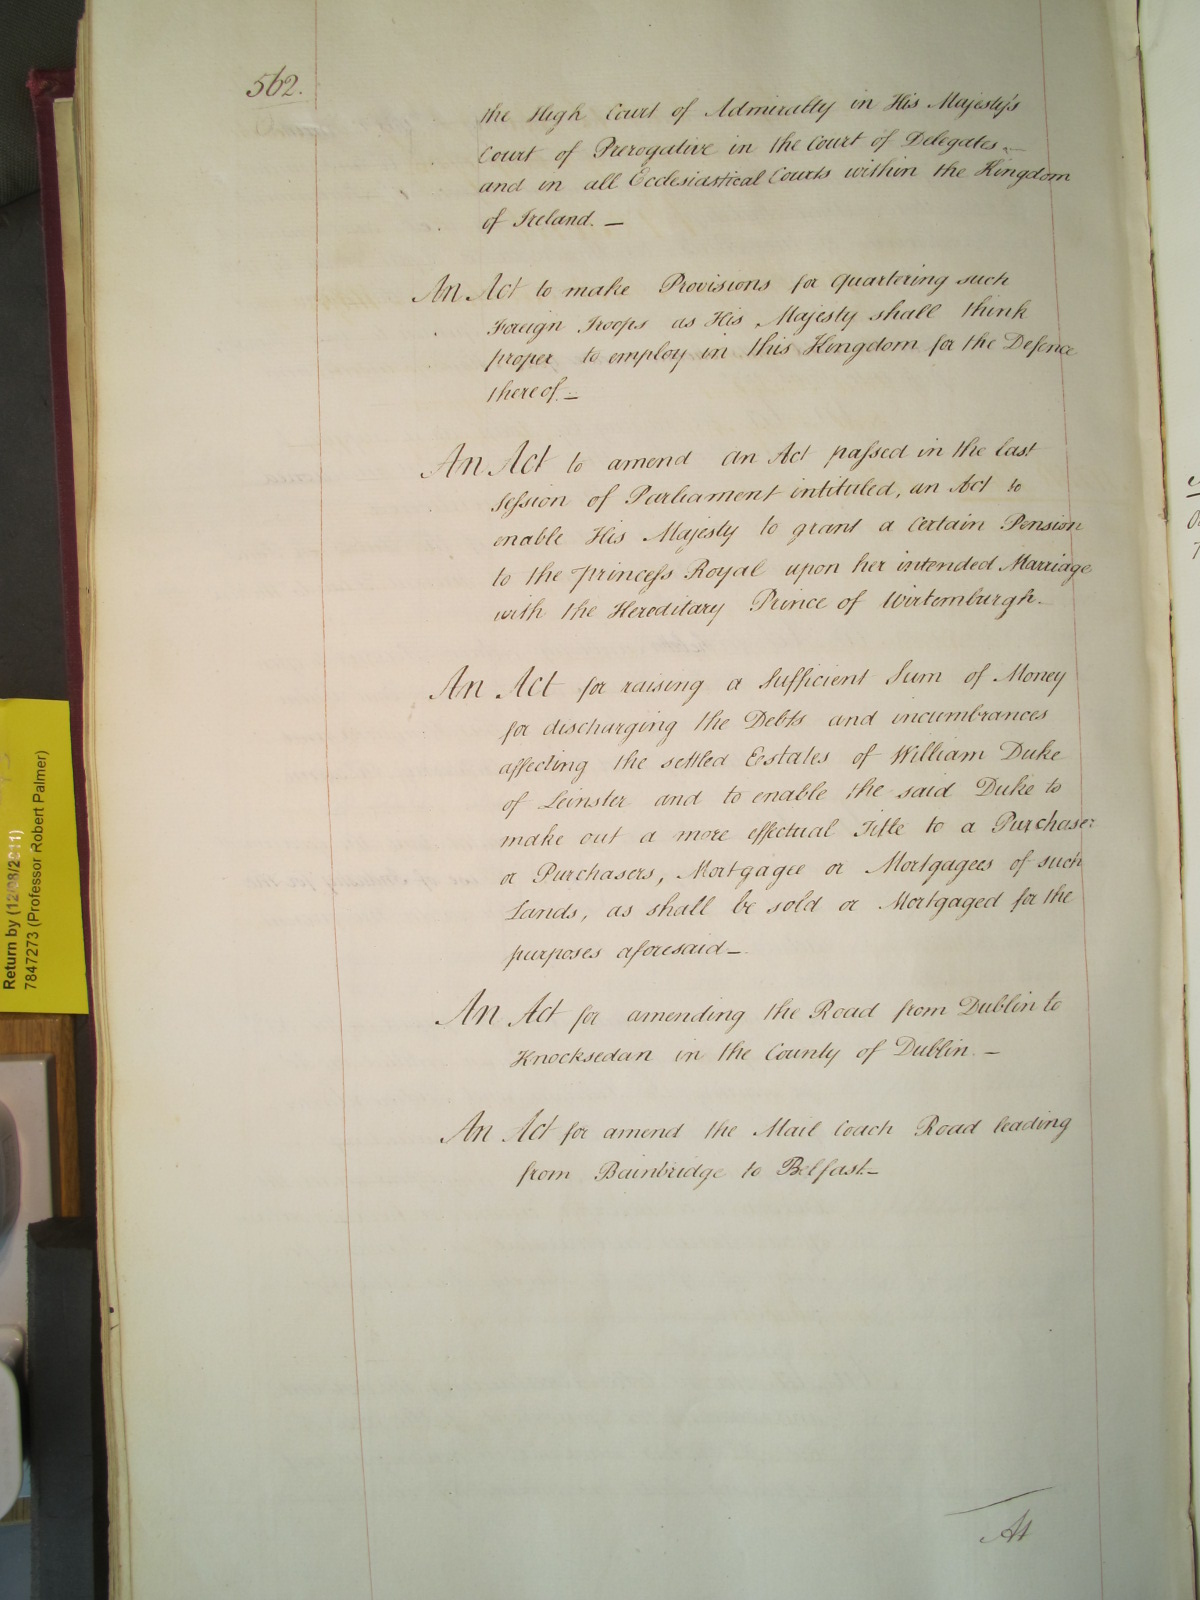 562.
the High Court of Admiralty in His Majesty's
Court of Prerogative in the Court of Delegates.—
and in all Ecclesiastical Courts within the Kingdom
of Ireland. —
An Act to make Provisions for quartering such
Foreign Troops as His Majesty shall think
proper to employ in this Kingdom for the Defence
thereof. —
An Act to amend an Act passed in the last
Session of Parliament intituled, an Act to
enable His Majesty to grant a Certain Pension
to the Princess Royal upon her intended Marriage
with the Hereditary Prince of Wirtemburgh.
An Act for raising a Sufficient Sum of Money
for discharging the Debts and incumbrances
affecting the settled Eestates of William Duke
of Leinster and to enable the said Duke to
make out a more effectual Title to a Purchaser
or Purchasers, Mortgagee or Mortgagees of such
Lands, as shall be sold or Mortgaged for the
purposes aforesaid —
An Act for amending the Road from Dublin to
Knocksedan in the County of Dublin. —
An Act for amend the Mail Coach Road leading
from Bainbridge to Belfast —
At
Return by (12/08/2011)
7847273 (Professor Robert Palmer)